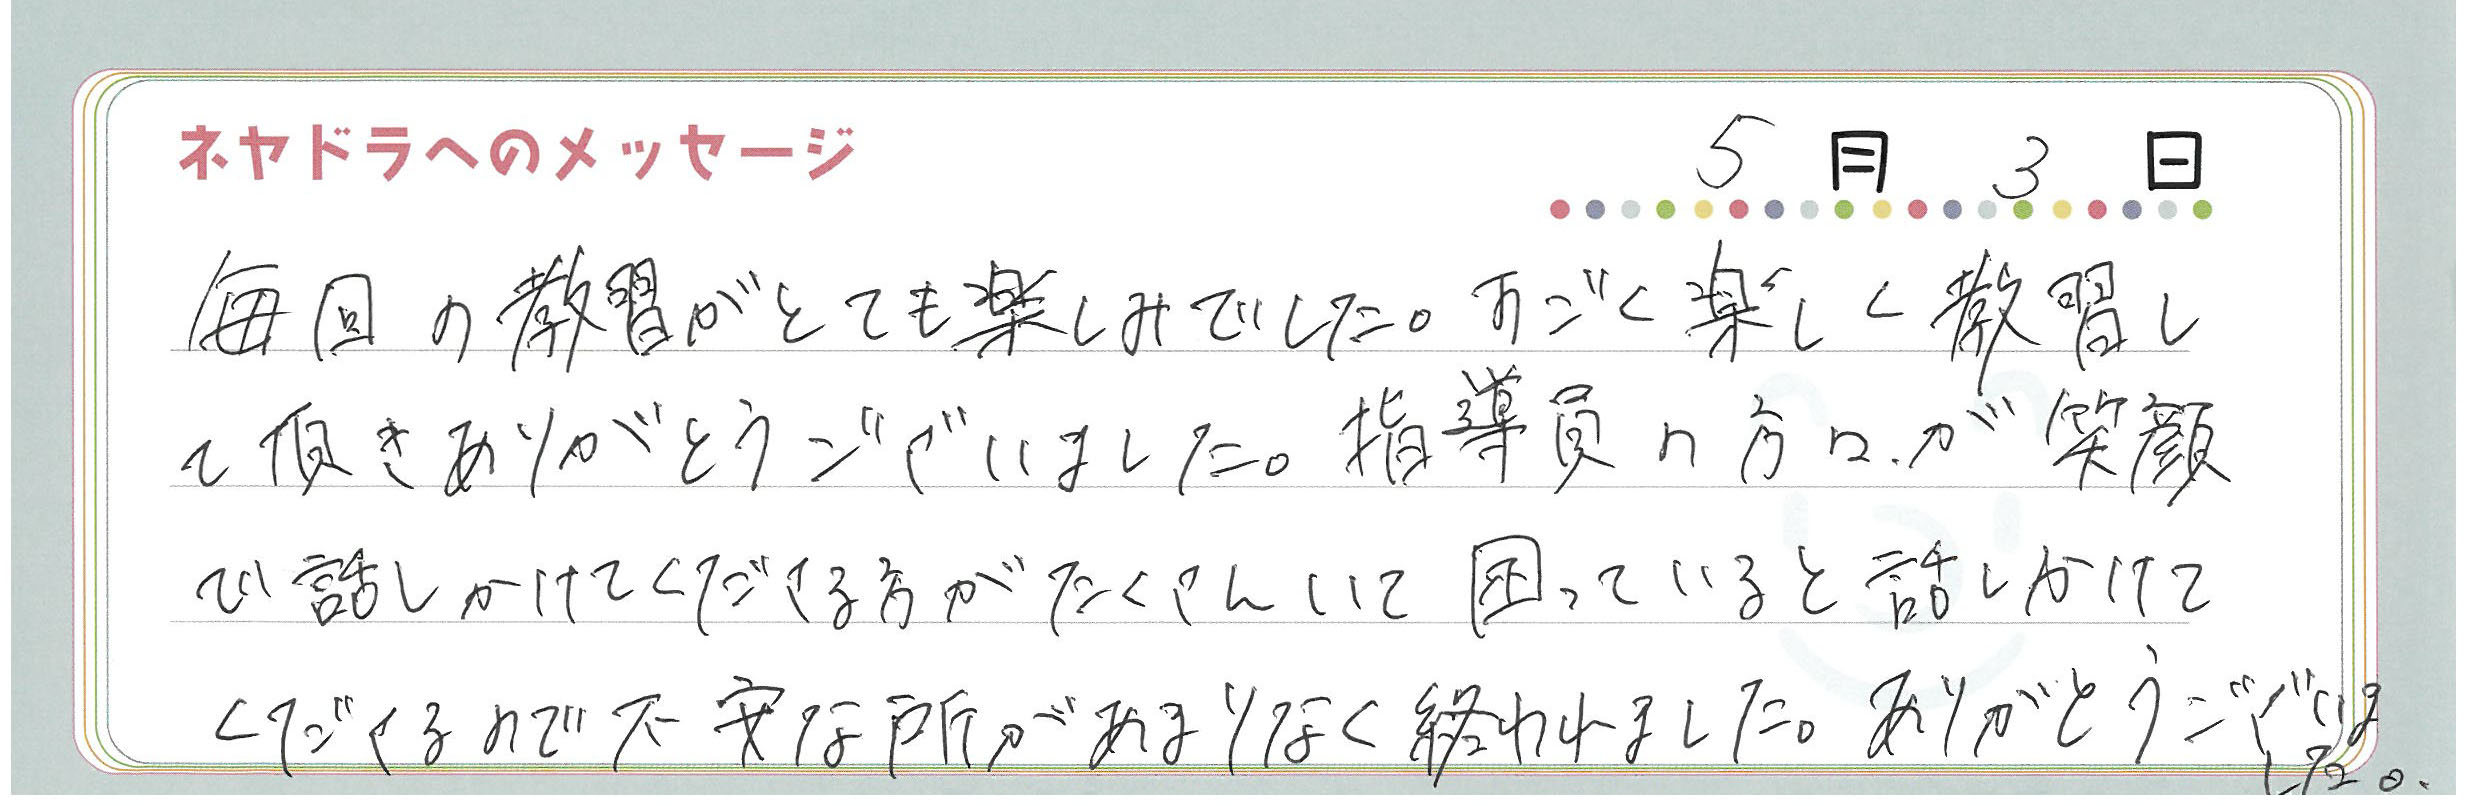 ネヤドラへのメッセージ
5月3日
毎回の教習がとても楽しみでした。すごく楽しく教習し
て頂きありがとうございました。指導員の方々が笑顔
で話しかけてくださる方がたくさんいて困っていると話しかけて
くださるので不安な所があまりなく終われました。ありがとうございま
した。